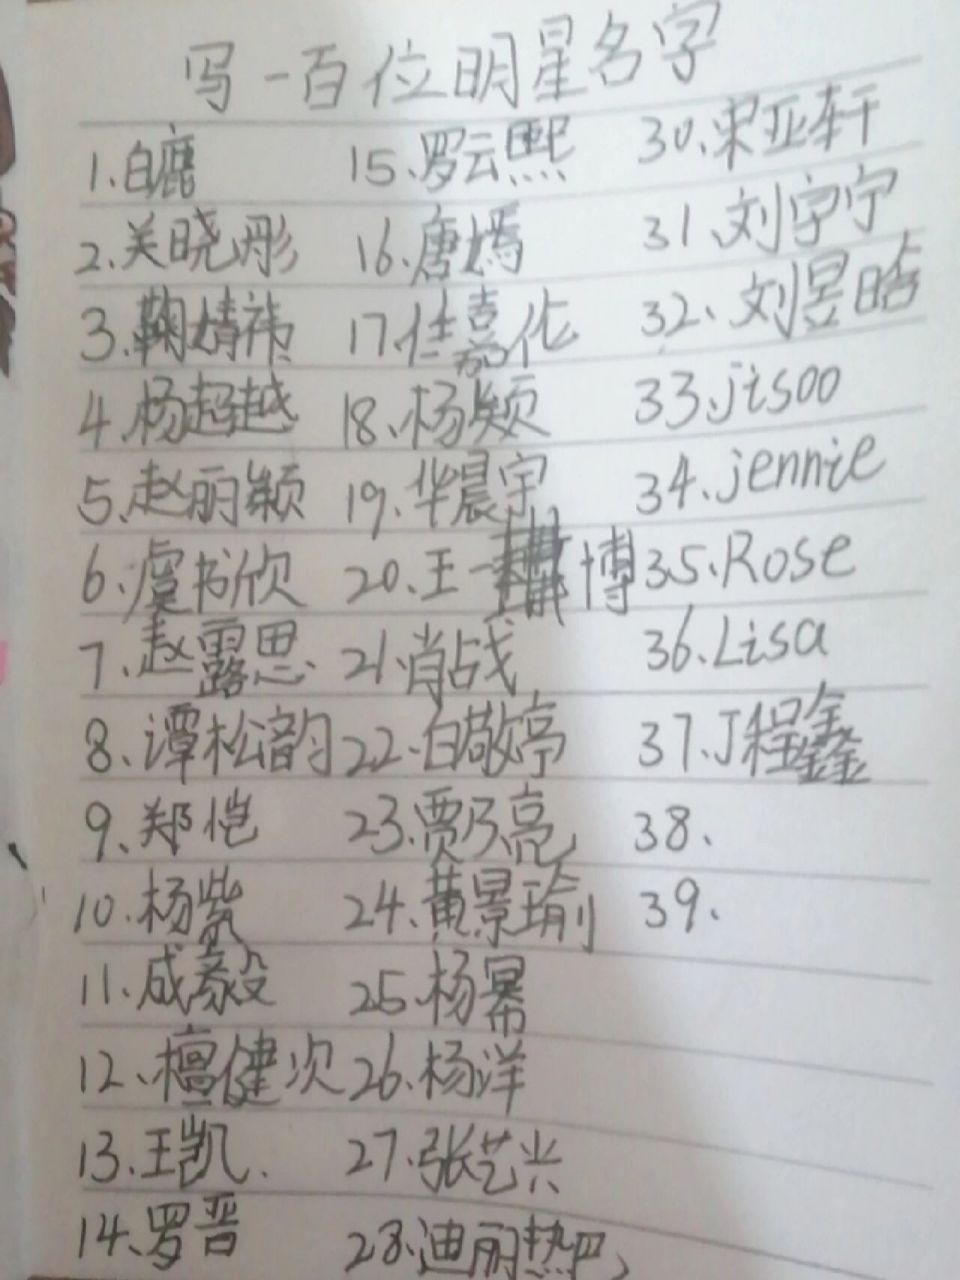 写一百位明星名字
1.白鹿
2.关晓彤
3.鞠婧祎
4.杨超越
5.赵丽颖
6.虞书欣
7.赵露思
8.谭松韵
9.郑恺
10.杨紫
11.成毅
12.檀健次
13.王凯.
14.罗晋
15.罗云熙
16.唐嫣
17.任嘉伦
18.杨颖
19.华晨宇
20.王一博
21.肖战
22.白敬婷
23.贾乃亮
24.黄景瑜
25.杨幂
26.杨洋
27.张艺兴
28.迪丽热巴
30.宋亚轩
31.刘宇宁
32.刘昱晗
33.jisoo
34.jennie
35.Rose
36.Lisa
37.丁程鑫
38.
39.